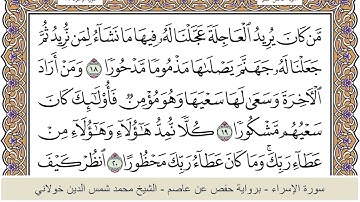 مَّن كَانَ يُرِيدُ ٱلْعَاجِلَةَ عَجَّلْنَا لَهُۥ فِيهَا مَا نَشَآءُ لِمَن نُّرِيدُ ثُمَّ
جَعَلْنَا لَهُۥ جَهَنَّمَ يَصْلَىٰهَا مَذْمُومًا مَّدْحُورًا ١٨ وَمَنْ أَرَادَ
ٱلْأَخِرَةَ وَسَعَىٰ لَهَا سَعْيَهَا وَهُوَ مُؤْمِنٌ فَأُو۟لَـٰٓئِكَ كَانَ
سَعْيُهُم مَّشْكُورًا ١٩ كُلًّا نُّمِدُّ هَـٰٓؤُلَآءِ وَهَـٰٓؤُلَآءِ مِنْ
عَطَآءِ رَبِّكَ ۚ وَمَا كَانَ عَطَآءُ رَبِّكَ مَحْظُورًا ٢٠ ٱنظُرْ كَيْفَ
سورة الإسراء - برواية حفص عن عاصم - الشيخ محمد شمس الدين خولاني